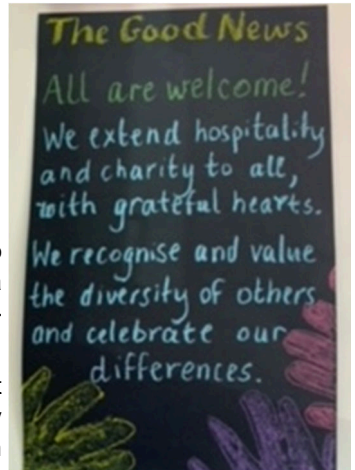 The Good News
All are welcome!
We extend hospitality
and charity to all,
with grateful hearts.
We recognise and value
the diversity of others
and celebrate our
differences.